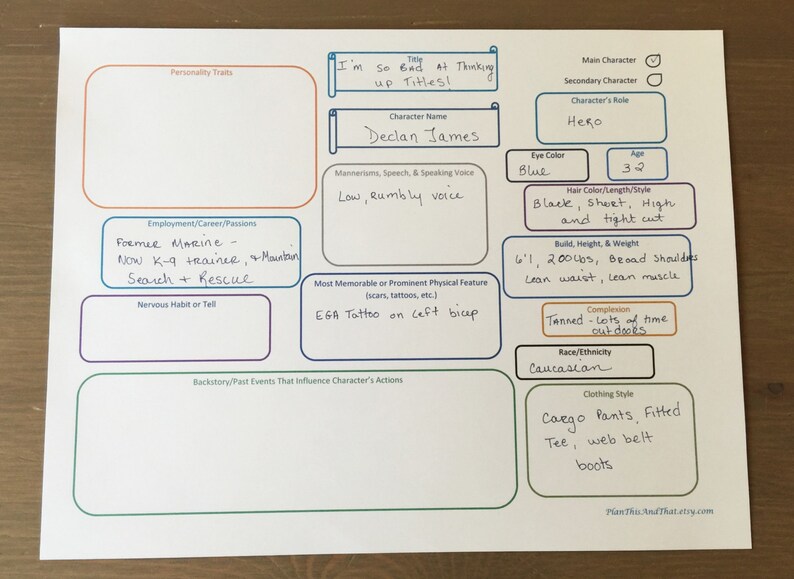 Personality Traits
Title
I'm so BAD At Thinking
up Titles!
Main Character
Secondary Character
Character's Role
Hero
Character Name
Declan James
Eye Color
Blue
Age
32
Mannerisms, Speech, & Speaking Voice
Low, Rumbly voice
Hair Color/Length/Style
Black, Short, High
and tight cut
Employment/Career/Passions
Former Marine -
Now K-9 trainer, & Mountain
Search + Rescue
Build, Height, & Weight
6'1, 200lbs, Broad Shoulders
Lean waist, Lean muscle
Most Memorable or Prominent Physical Feature
(scars, tattoos, etc.)
EGA Tattoo on Left bicep
Nervous Habit or Tell
Complexion
Tanned - Lots of time
outdoors
Race/Ethnicity
Caucasian
Backstory/Past Events That Influence Character's Actions
Clothing Style
Cargo Pants, Fitted
Tee, web belt
boots
PlanThisAndThat.etsy.com